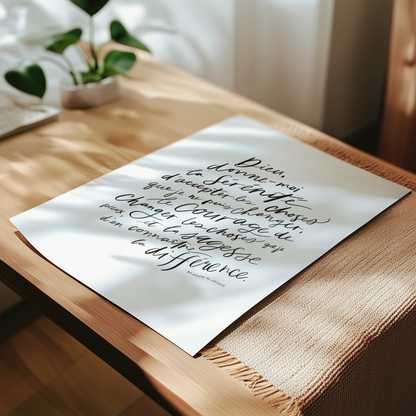 Dieu,
donne moi
la Sérénité
d'accepter les choses
que je ne puis changer,
le Courage de
changer les choses que je
peux, et la Sagesse
d'en connaître
la différence.